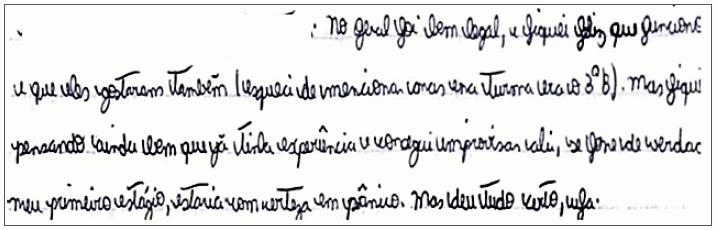 . No geral foi bem legal, e fiquei feliz que funcionc
e que eles gostaram também (esqueci de mencionar mas era turma era o 3º B). Mas fiqui
pensando ainda bem que já tinha experiência e consegui improvisar ali, se fosse de verdac
meu primeiro estágio, estaria com certeza em pânico. Mas deu tudo certo, ufa.